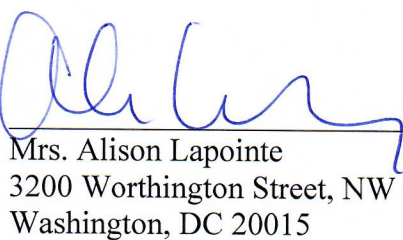 Mrs. Alison Lapointe
3200 Worthington Street, NW
Washington, DC 20015